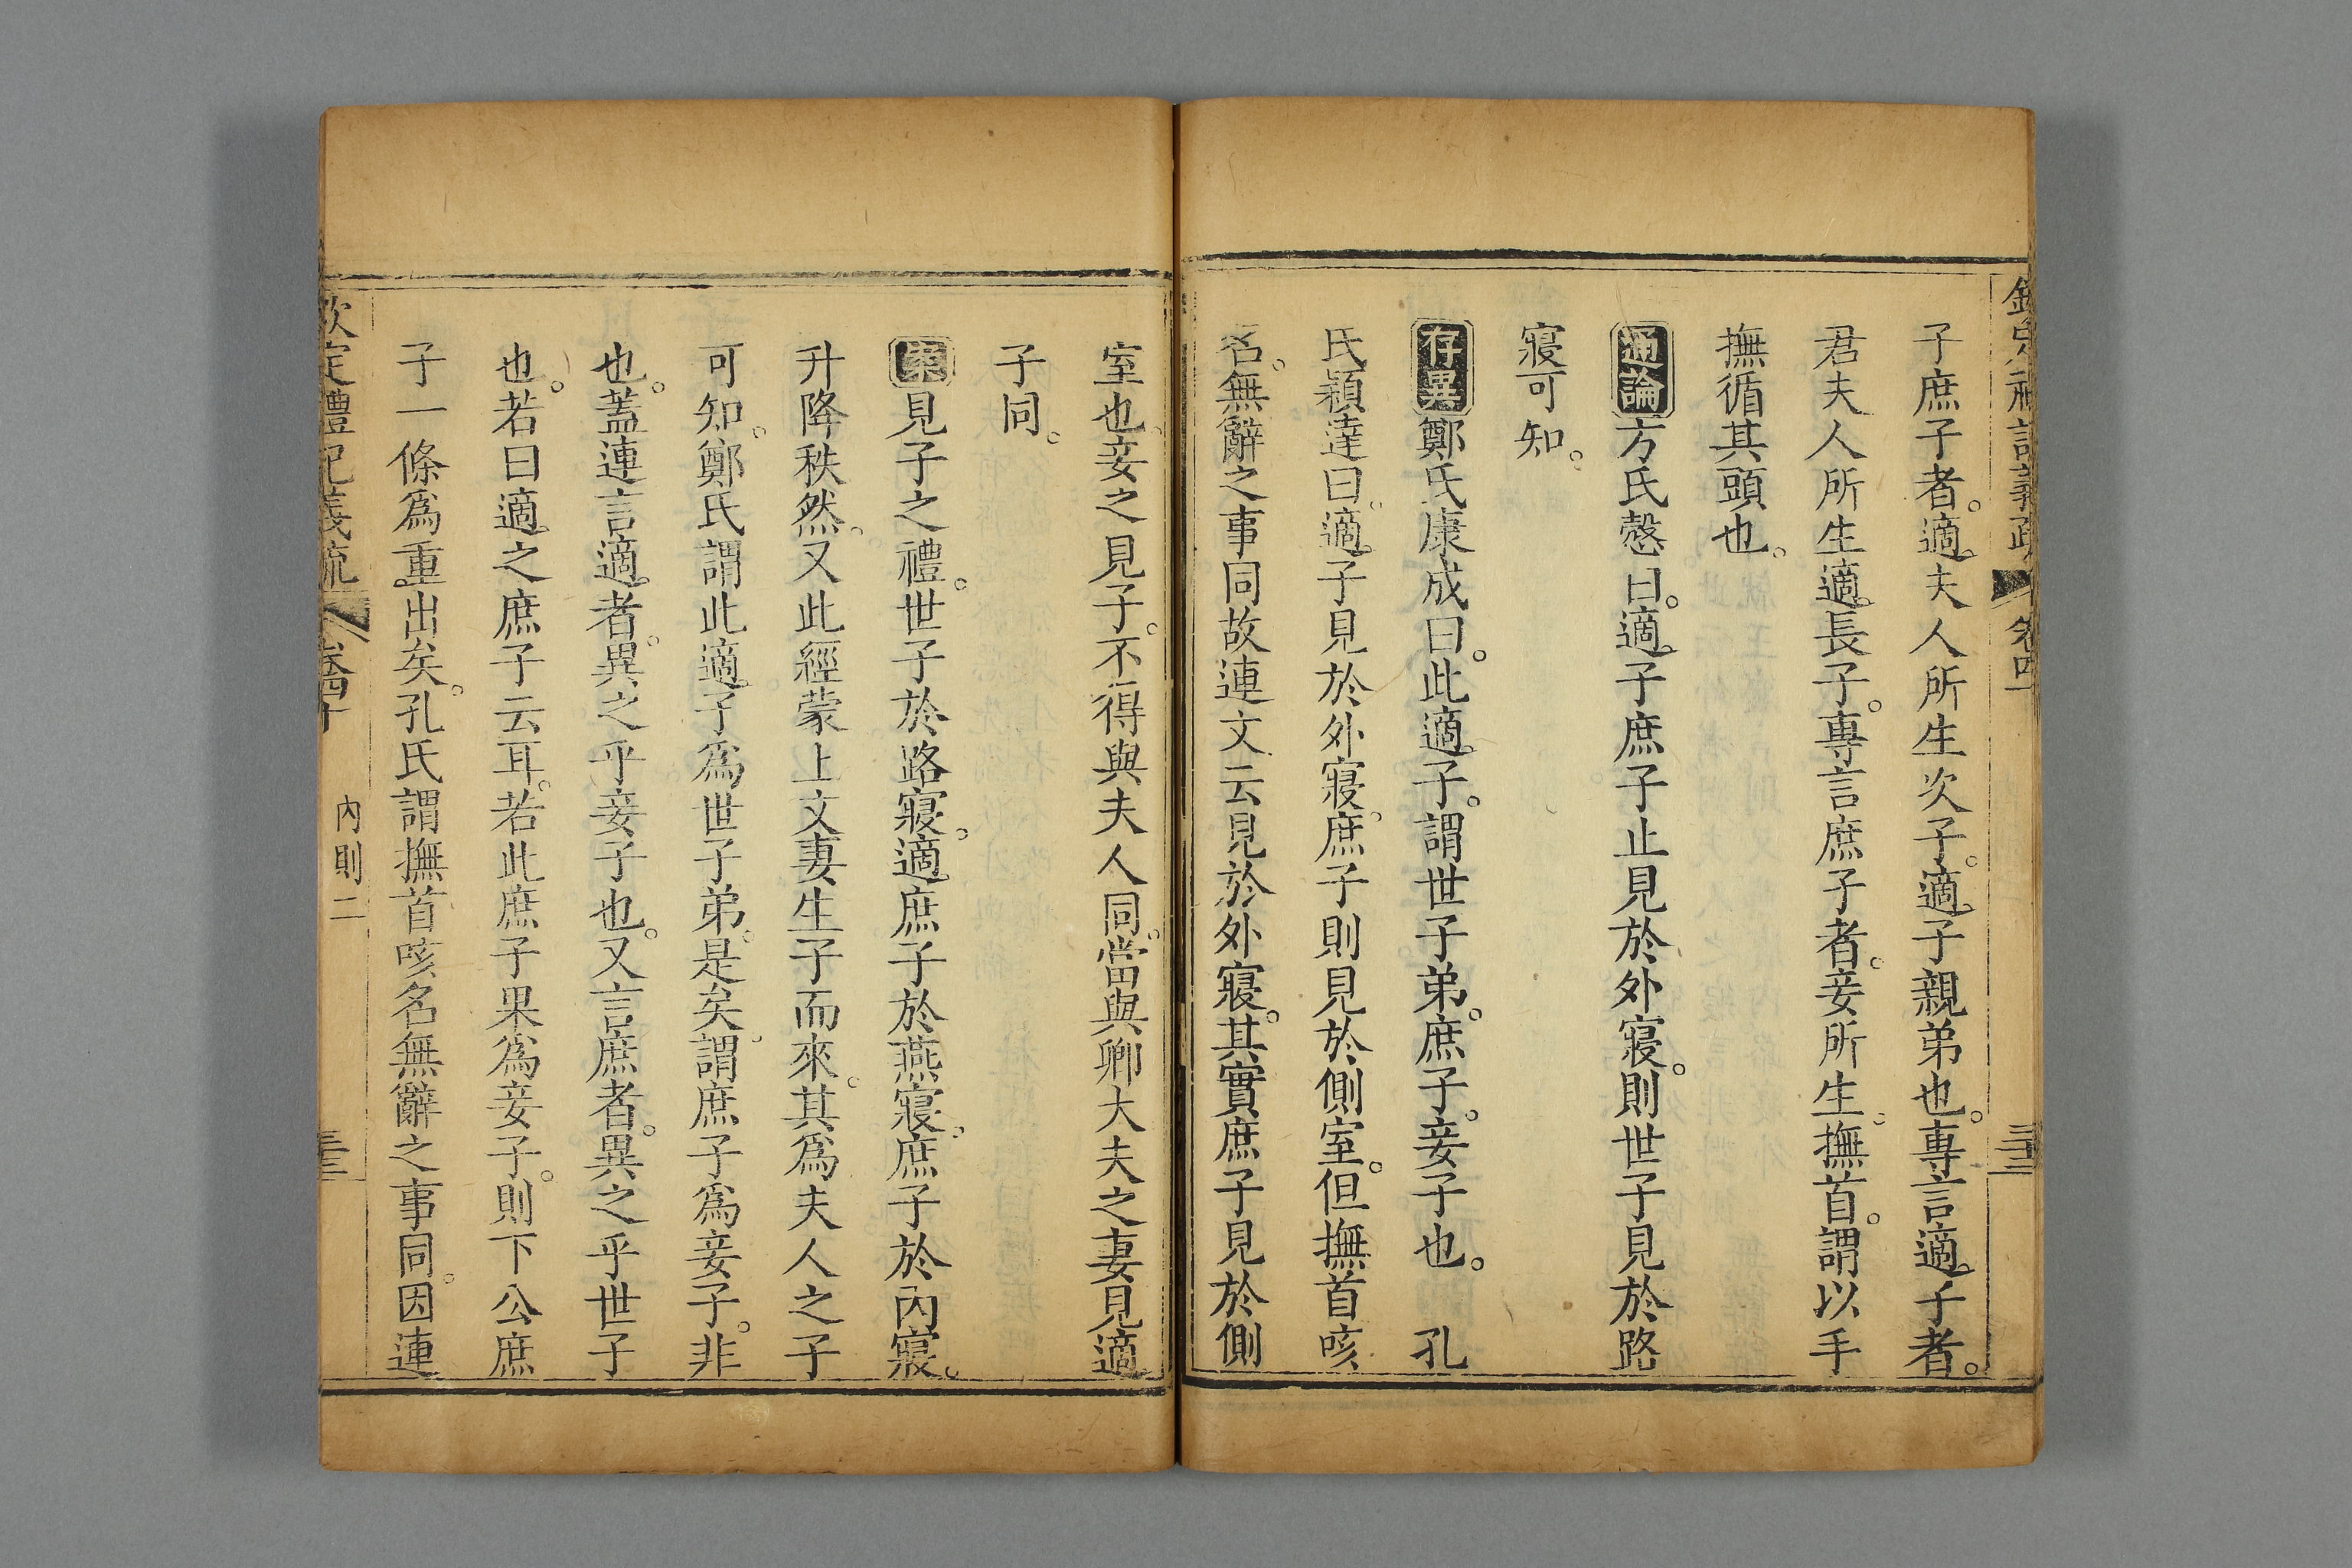 子庶子者。適夫人所生次子。適子親弟也。專言適子者。
君夫人所生適長子。專言庶子者。妾所生。撫首。謂以手
撫循其頭也。
通論方氏慤曰。適子庶子止見於外寢。則世子見於路
寢可知。
存異鄭氏康成曰。此適子。謂世子弟。庶子。妾子也。 孔
氏穎達曰。適子見於外寢。庶子則見於側室。但撫首咳
名。無辭之事同故連文云見於外寢。其實庶子見於側
室也。妾之見子。不得與夫人同。當與卿大夫之妻見適
子同。
案見子之禮。世子於路寢。適庶子於燕寢。庶子於內寢。
升降秩然。又此經蒙上文妻生子而來。其爲夫人之子
可知。鄭氏謂此適子爲世子弟。是矣。謂庶子爲妾子。非
也。蓋連言適者。異之乎妾子也。又言庶者。異之乎世子
也。若曰適之庶子云耳。若此庶子果爲妾子。則下公庶
子一條爲重出矣。孔氏謂撫首咳名無辭之事同。因連
欽定禮記義疏 卷四十 內則二